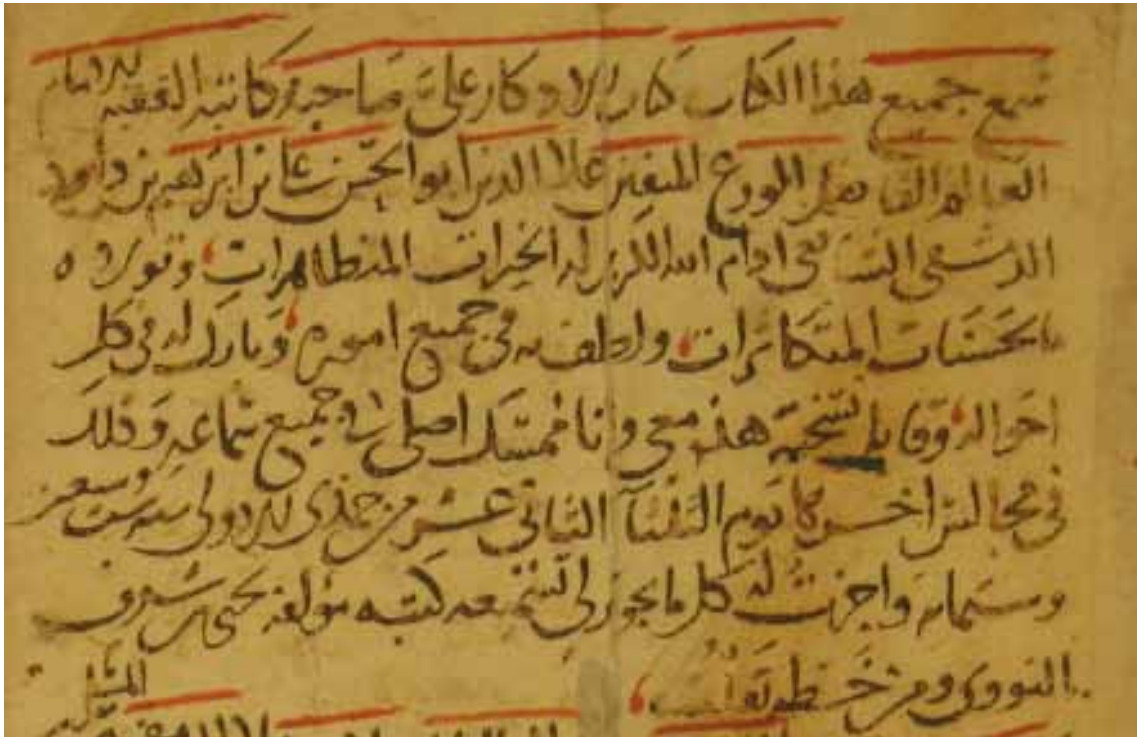 سمع جميع هذا الكتاب كتاب الاذكار علي صاحبه وكاتبه الفقيه الامام
العالم الفاضل الورع المتقن علا الدين ابو الحسن علي بن ابرهيم بن داود
الدمشقي الشافعي ادام الله الكريم له الخيرات المتظاهرات وتولاه
بالحسنات المتكاثرات ولطف به في جميع اموره وبارك له في كل
احواله وقابل نسخته هذه معي وانا ممسك اصلي في جميع سماعه وذلك
في مجالس اخرها يوم الثلثا الثاني عشر من جمدى الاولى سنة ست وسبعين
وستمائة واجزت له كل ما يجوز لي تسميعه كتبه مؤلفه يحيى بن شرف
النووي ومن خطه نقلت